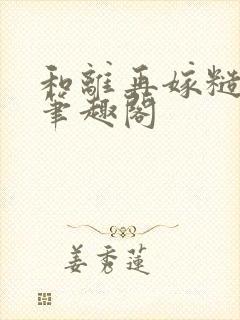 和離再嫁糙
筆趣閣
姜秀蓮